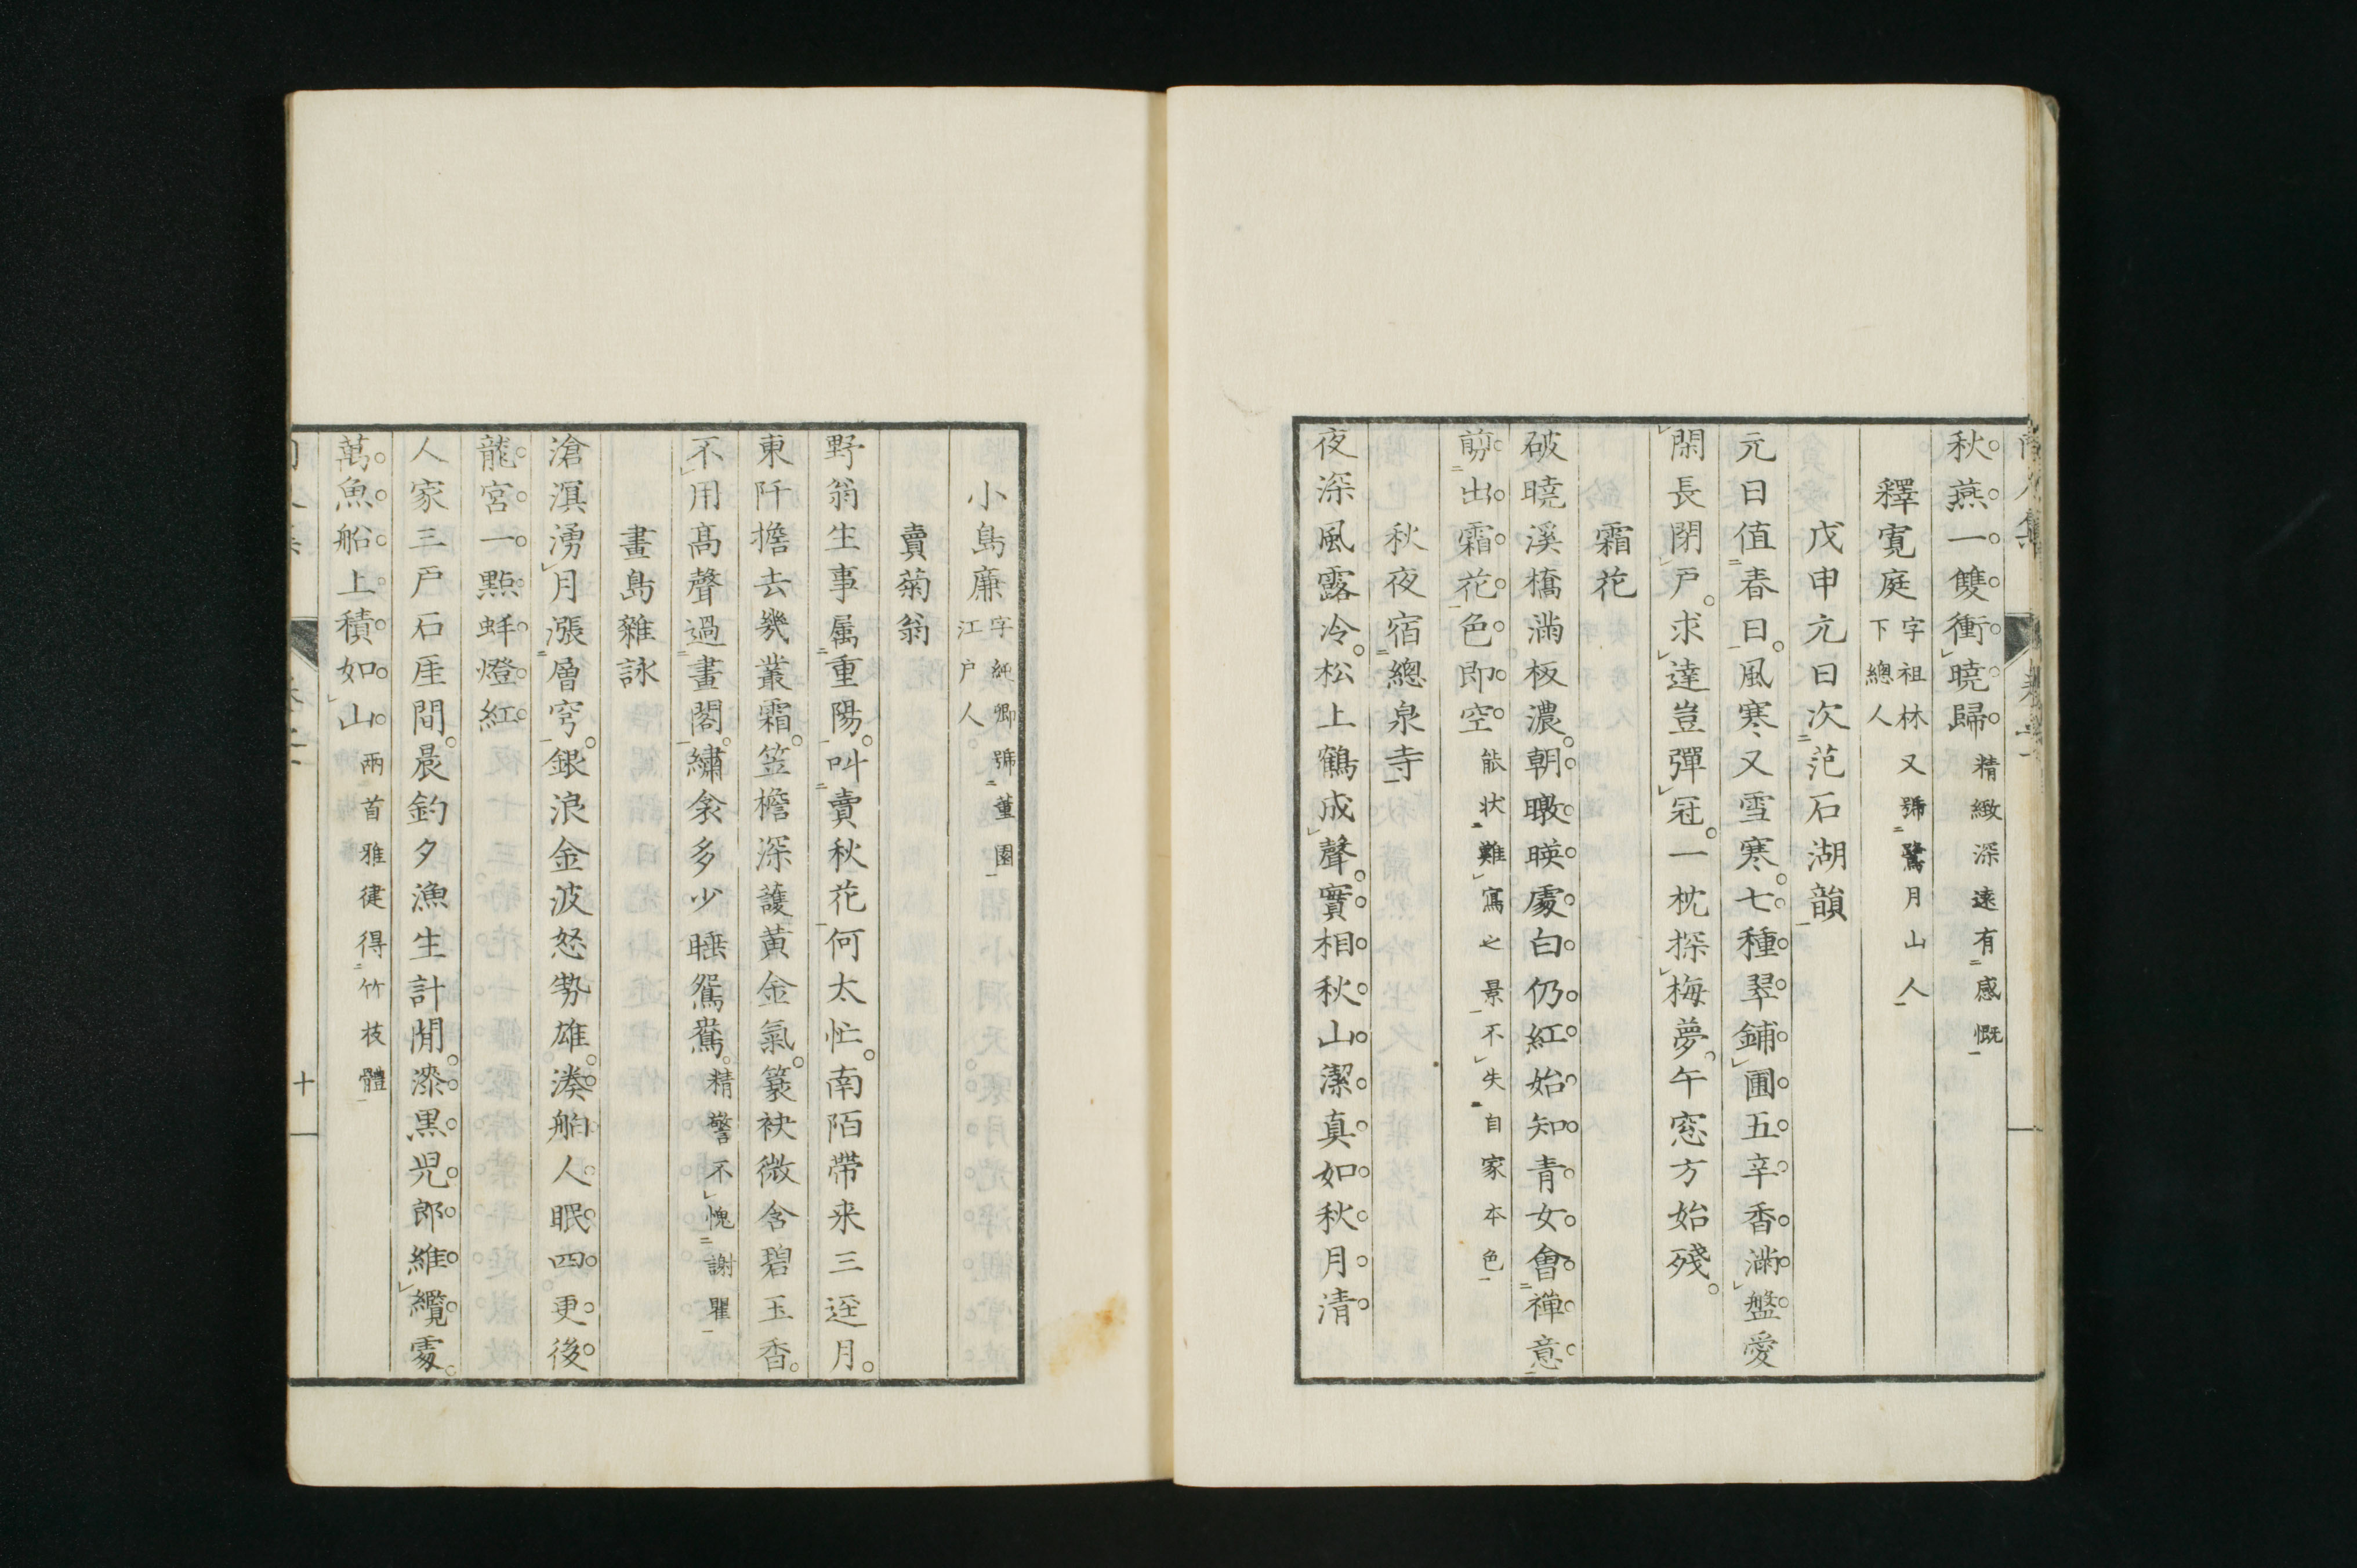 秋燕一雙衝曉歸 精緻深遠有感慨
釋寛庭 字祖林又號鷺月山人
下總人
戊申元日次范石湖韻
元日值春日風寒又雪寒七種翠鋪圃五辛香滿盤愛
閑長閉戶求達豈彈冠一枕探梅夢午窓方始殘
霜花
破曉溪橋滿板濃朝暾暎處白仍紅始知青女會禪意
剪出霜花色即空 能状難寫之景不失自家本色
秋夜宿總泉寺
夜深風露冷松上鶴成聲實相秋山潔真如秋月清
小島廉 字純卿號董園
江戸人
賣菊翁
野翁生事属重陽叫賣秋花何太忙南陌帶来三逕月
東阡擔去幾叢霜笠檐深護黃金氣簑袂微含碧玉香
不用髙聲過畫閣繡衾多少睡鴛鴦 精警不愧謝瞿
畫島雜詠
滄溟湧月漲層穹銀浪金波怒勢雄湊舶人眠四更後
龍宮一點蚌燈紅
人家三戸石厓間晨釣夕漁生計閒漆黒児郎維纜處
萬魚船上積如山 兩首雅健得竹枝體
十